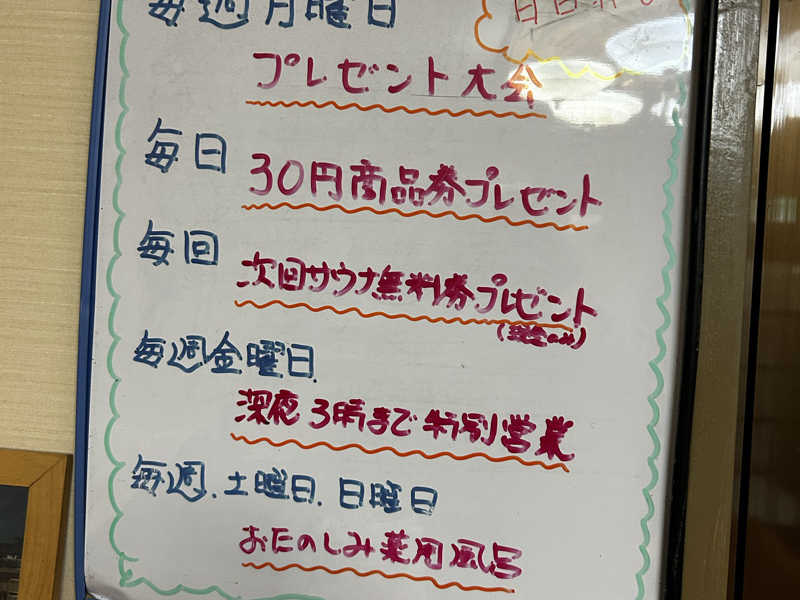 毎週月曜日
プレゼント大会
毎日
30円商品券プレゼント
毎回
次回サウナ無料券プレゼント
(現金のみ)
毎週金曜日
深夜3時まで特別営業
毎週.土曜日.日曜日
おたのしみ薬用風呂